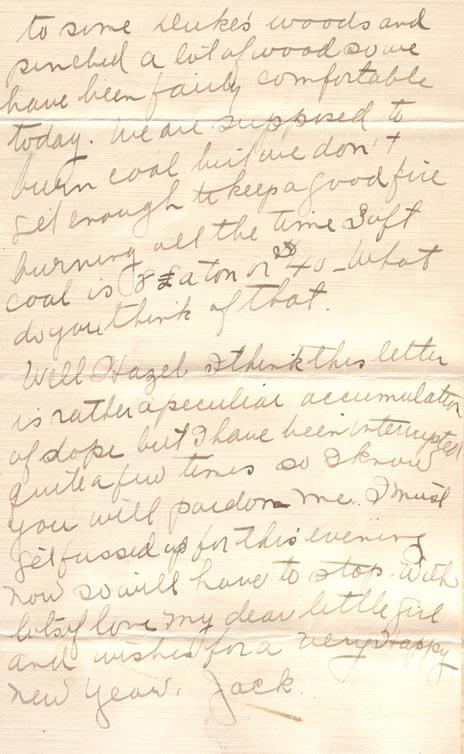 to some Duke's woods and
pinched a lot of wood so we
have been fairly comfortable
today. We are supposed to
burn coal but we don't
get enough to keep a good fire
burning all the time Soft
coal is 8£ a ton or $40 - What
do you think of that.
Well Hazel I think this letter
is rather a peculiar accumulation
of dope but I have been interrupted
quite a few times so I know
you will pardon me. I must
get fussed up for this evening
now so will have to stop. With
lots of love my dear little girl
and wishes for a very Happy
New Year. Jack.